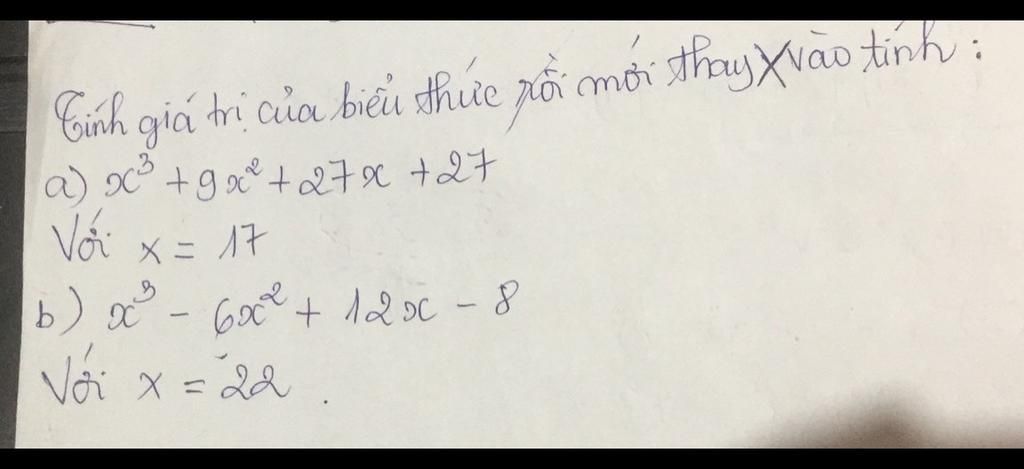 Tính giá trị của biểu thức rồi mới thay X vào tính :
a) x³ + 9x² + 27x + 27
Với x = 17
b) x³ - 6x² + 12x - 8
Với x = 22 .